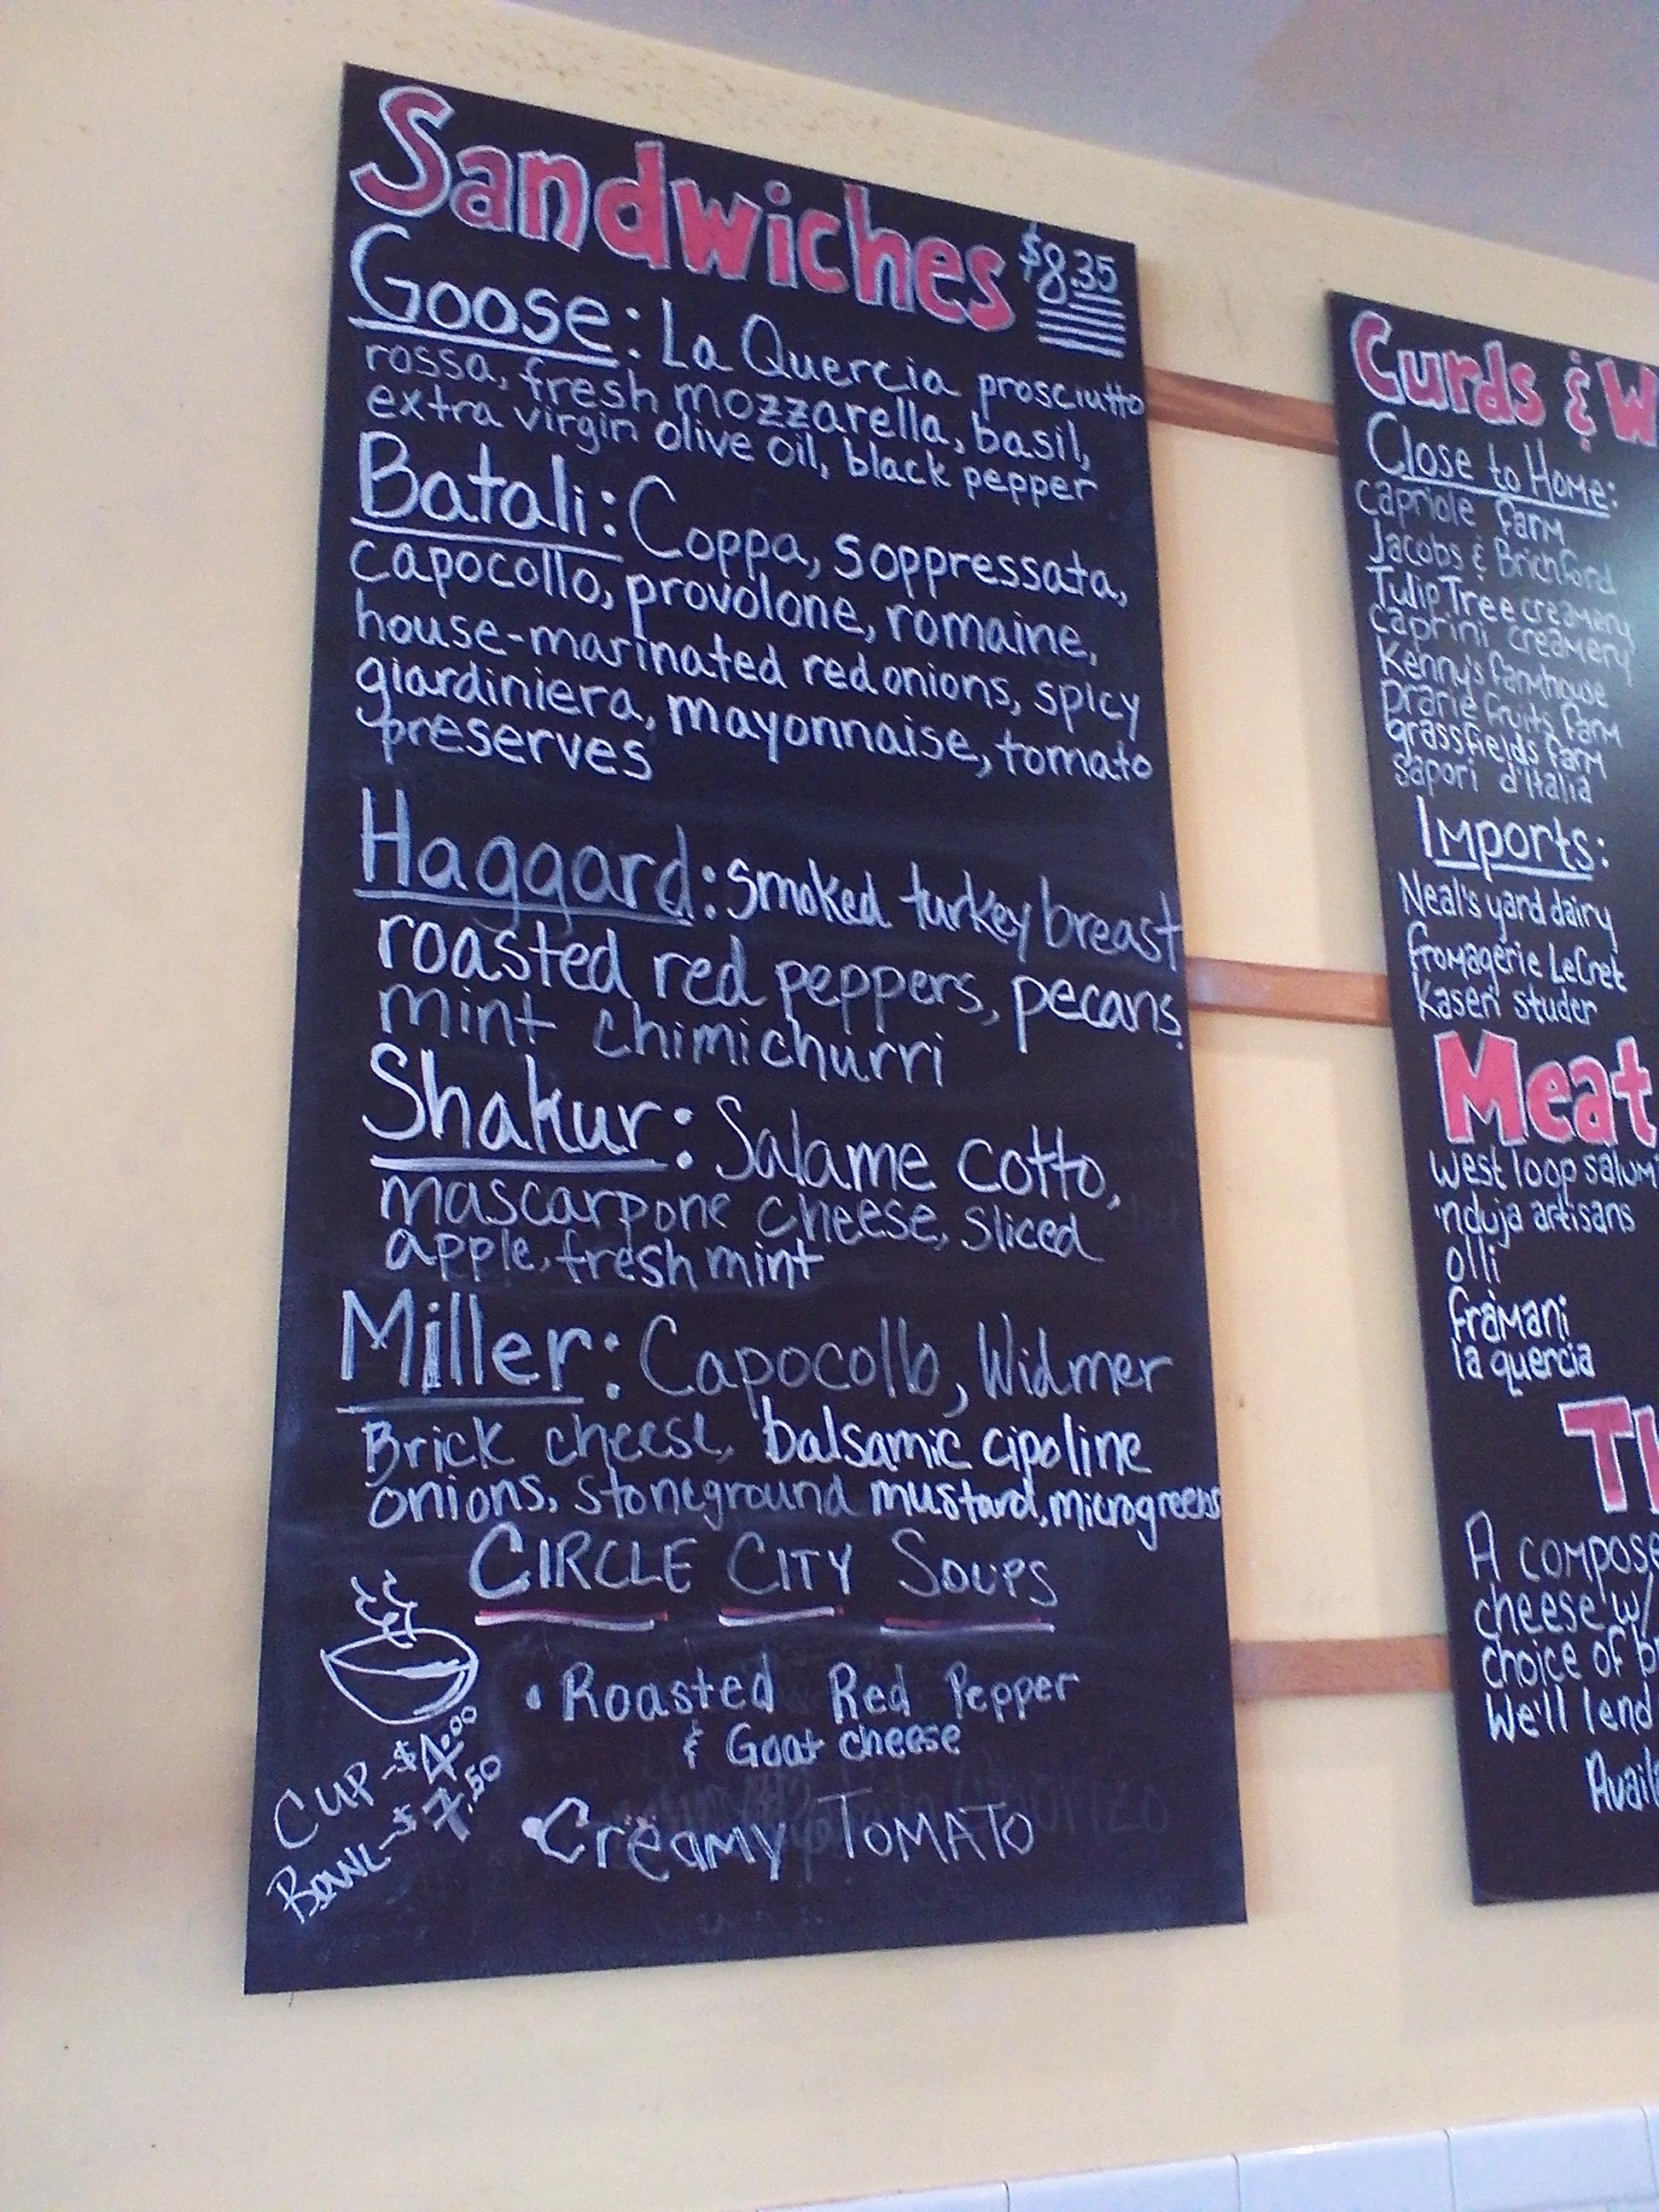 Sandwiches $8.35
Goose: La Quercia prosciutto
rossa, fresh mozzarella, basil,
extra virgin olive oil, black pepper
Batali: Coppa, Soppressata,
capocollo, provolone, romaine,
house-marinated red onions, spicy
giardiniera, mayonnaise, tomato
preserves
Haggard: smoked turkey breast
roasted red peppers, pecans,
mint chimichurri
Shakur: Salame cotto,
mascarpone cheese, sliced
apple, fresh mint
Miller: Capocollo, Widmer
Brick cheese, balsamic cipoline
onions, stoneground mustard, microgreens
CIRCLE CITY SOUPS
• Roasted Red Pepper
& Goat cheese
• Creamy TOMATO
CUP - $4.00
BOWL - $7.50
Curds & W
Close to Home:
capriole farm
Jacobs & Brichford
Tulip Tree creamery
caprini creamery
Kenny's farmhouse
prarie fruits farm
grassfields farm
sapori d'Italia
Imports:
Neal's yard dairy
fromagerie LeCret
Kaseri studer
Meat
west loop salumi
'nduja artisans
olli
framani
la quercia
A compose
cheese w/
choice of b
We'll lend
Avail